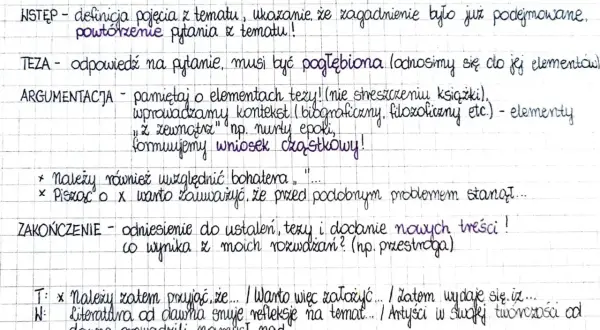 WSTĘP - definicja pojęcia z tematu, ukazanie, że zagadnienie było już podejmowane,
powtórzenie pytania z tematu!
TEZA - odpowiedź na pytanie, musi być pogłębiona (odnosimy się do jej elementów)
ARGUMENTACJA - pamiętaj o elementach tezy! (nie streszczeniu książki),
wprowadzamy kontekst (biograficzny, filozoficzny etc.) - elementy
"z zewnątrz" np. nurty epoki,
formułujemy wniosek cząstkowy!
× Należy również uwzględnić bohatera „"...
× Pisząc o x warto zauważyć, że przed podobnym problemem stanął...
ZAKOŃCZENIE - odniesienie do ustaleń, tezy i dodanie nowych treści!
co wynika z moich rozważań? (np. przestroga)
T: × Należy zatem przyjąć, że... / Warto więc założyć... / Zatem wydaje się, iż...
W: Literatura od dawna snuje refleksje na temat... / Artyści w swojej twórczości od